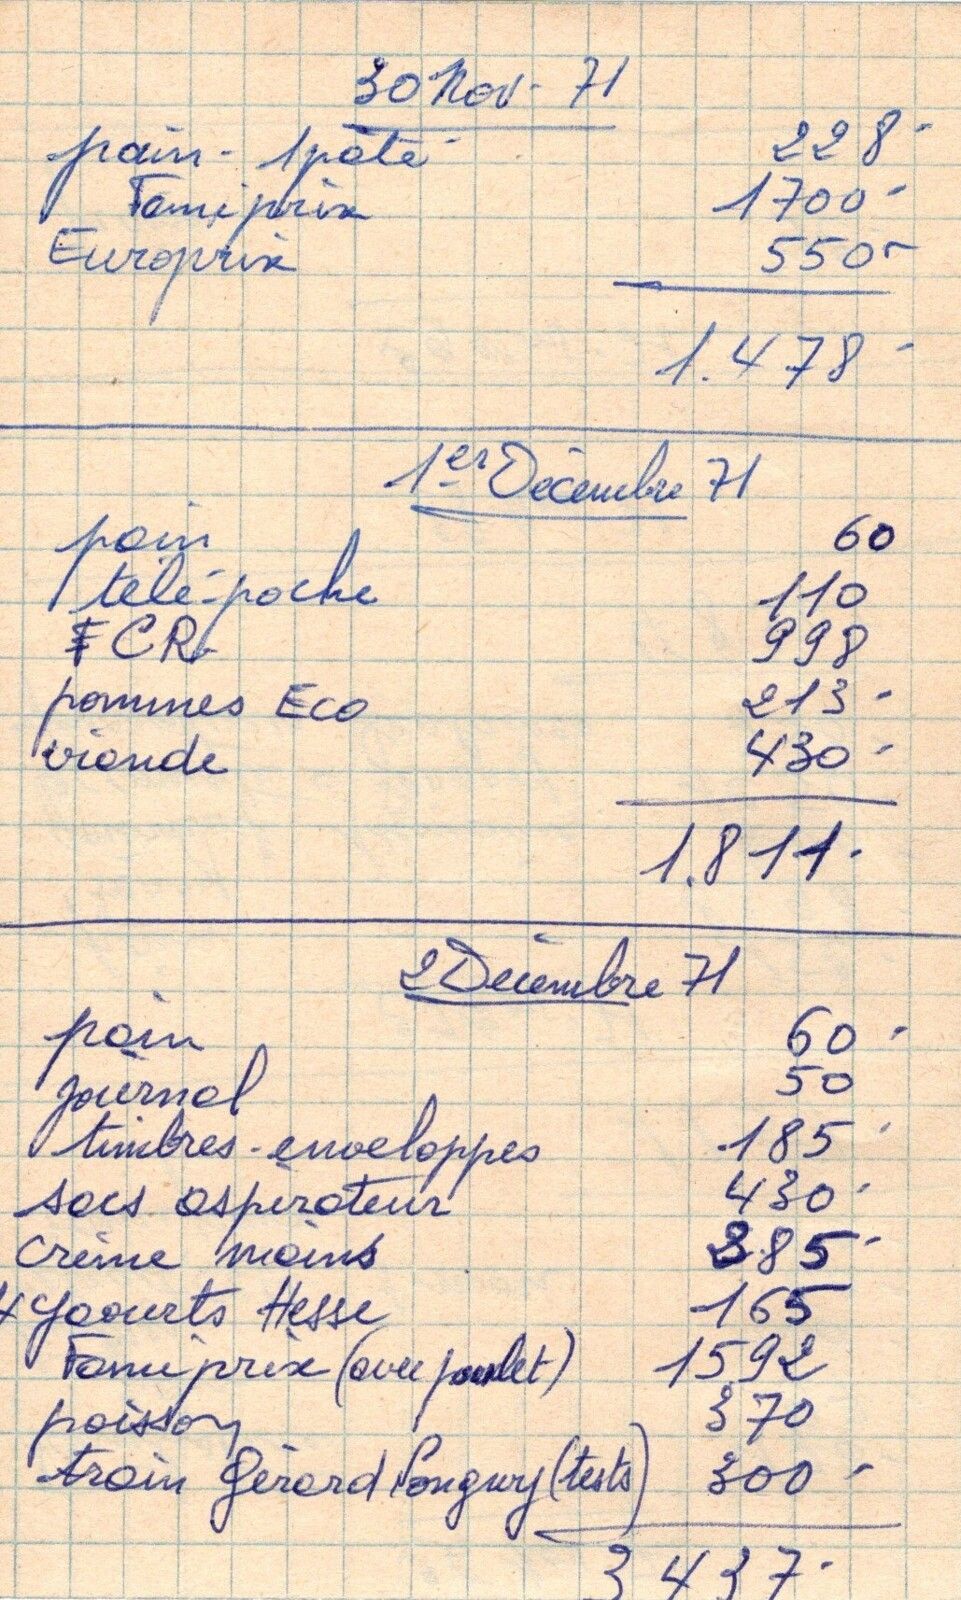 30 Nov. 71
pain - 1 pâté 228-
Famiprix 1700-
Europrix 550-
1.478-
1er Décembre 71
pain 60
télé-poche 110
FCR. 998
pommes Eco 213-
viande 430-
1.811-
2 Décembre 71
pain 60-
journal 50
timbres-enveloppes 185-
sacs aspirateur 430-
crème mains 385-
4 yaourts Hesse 165
Famiprix (avec poulet) 1592
poisson 370
train Gérard Longwy (tests) 300-
3437-